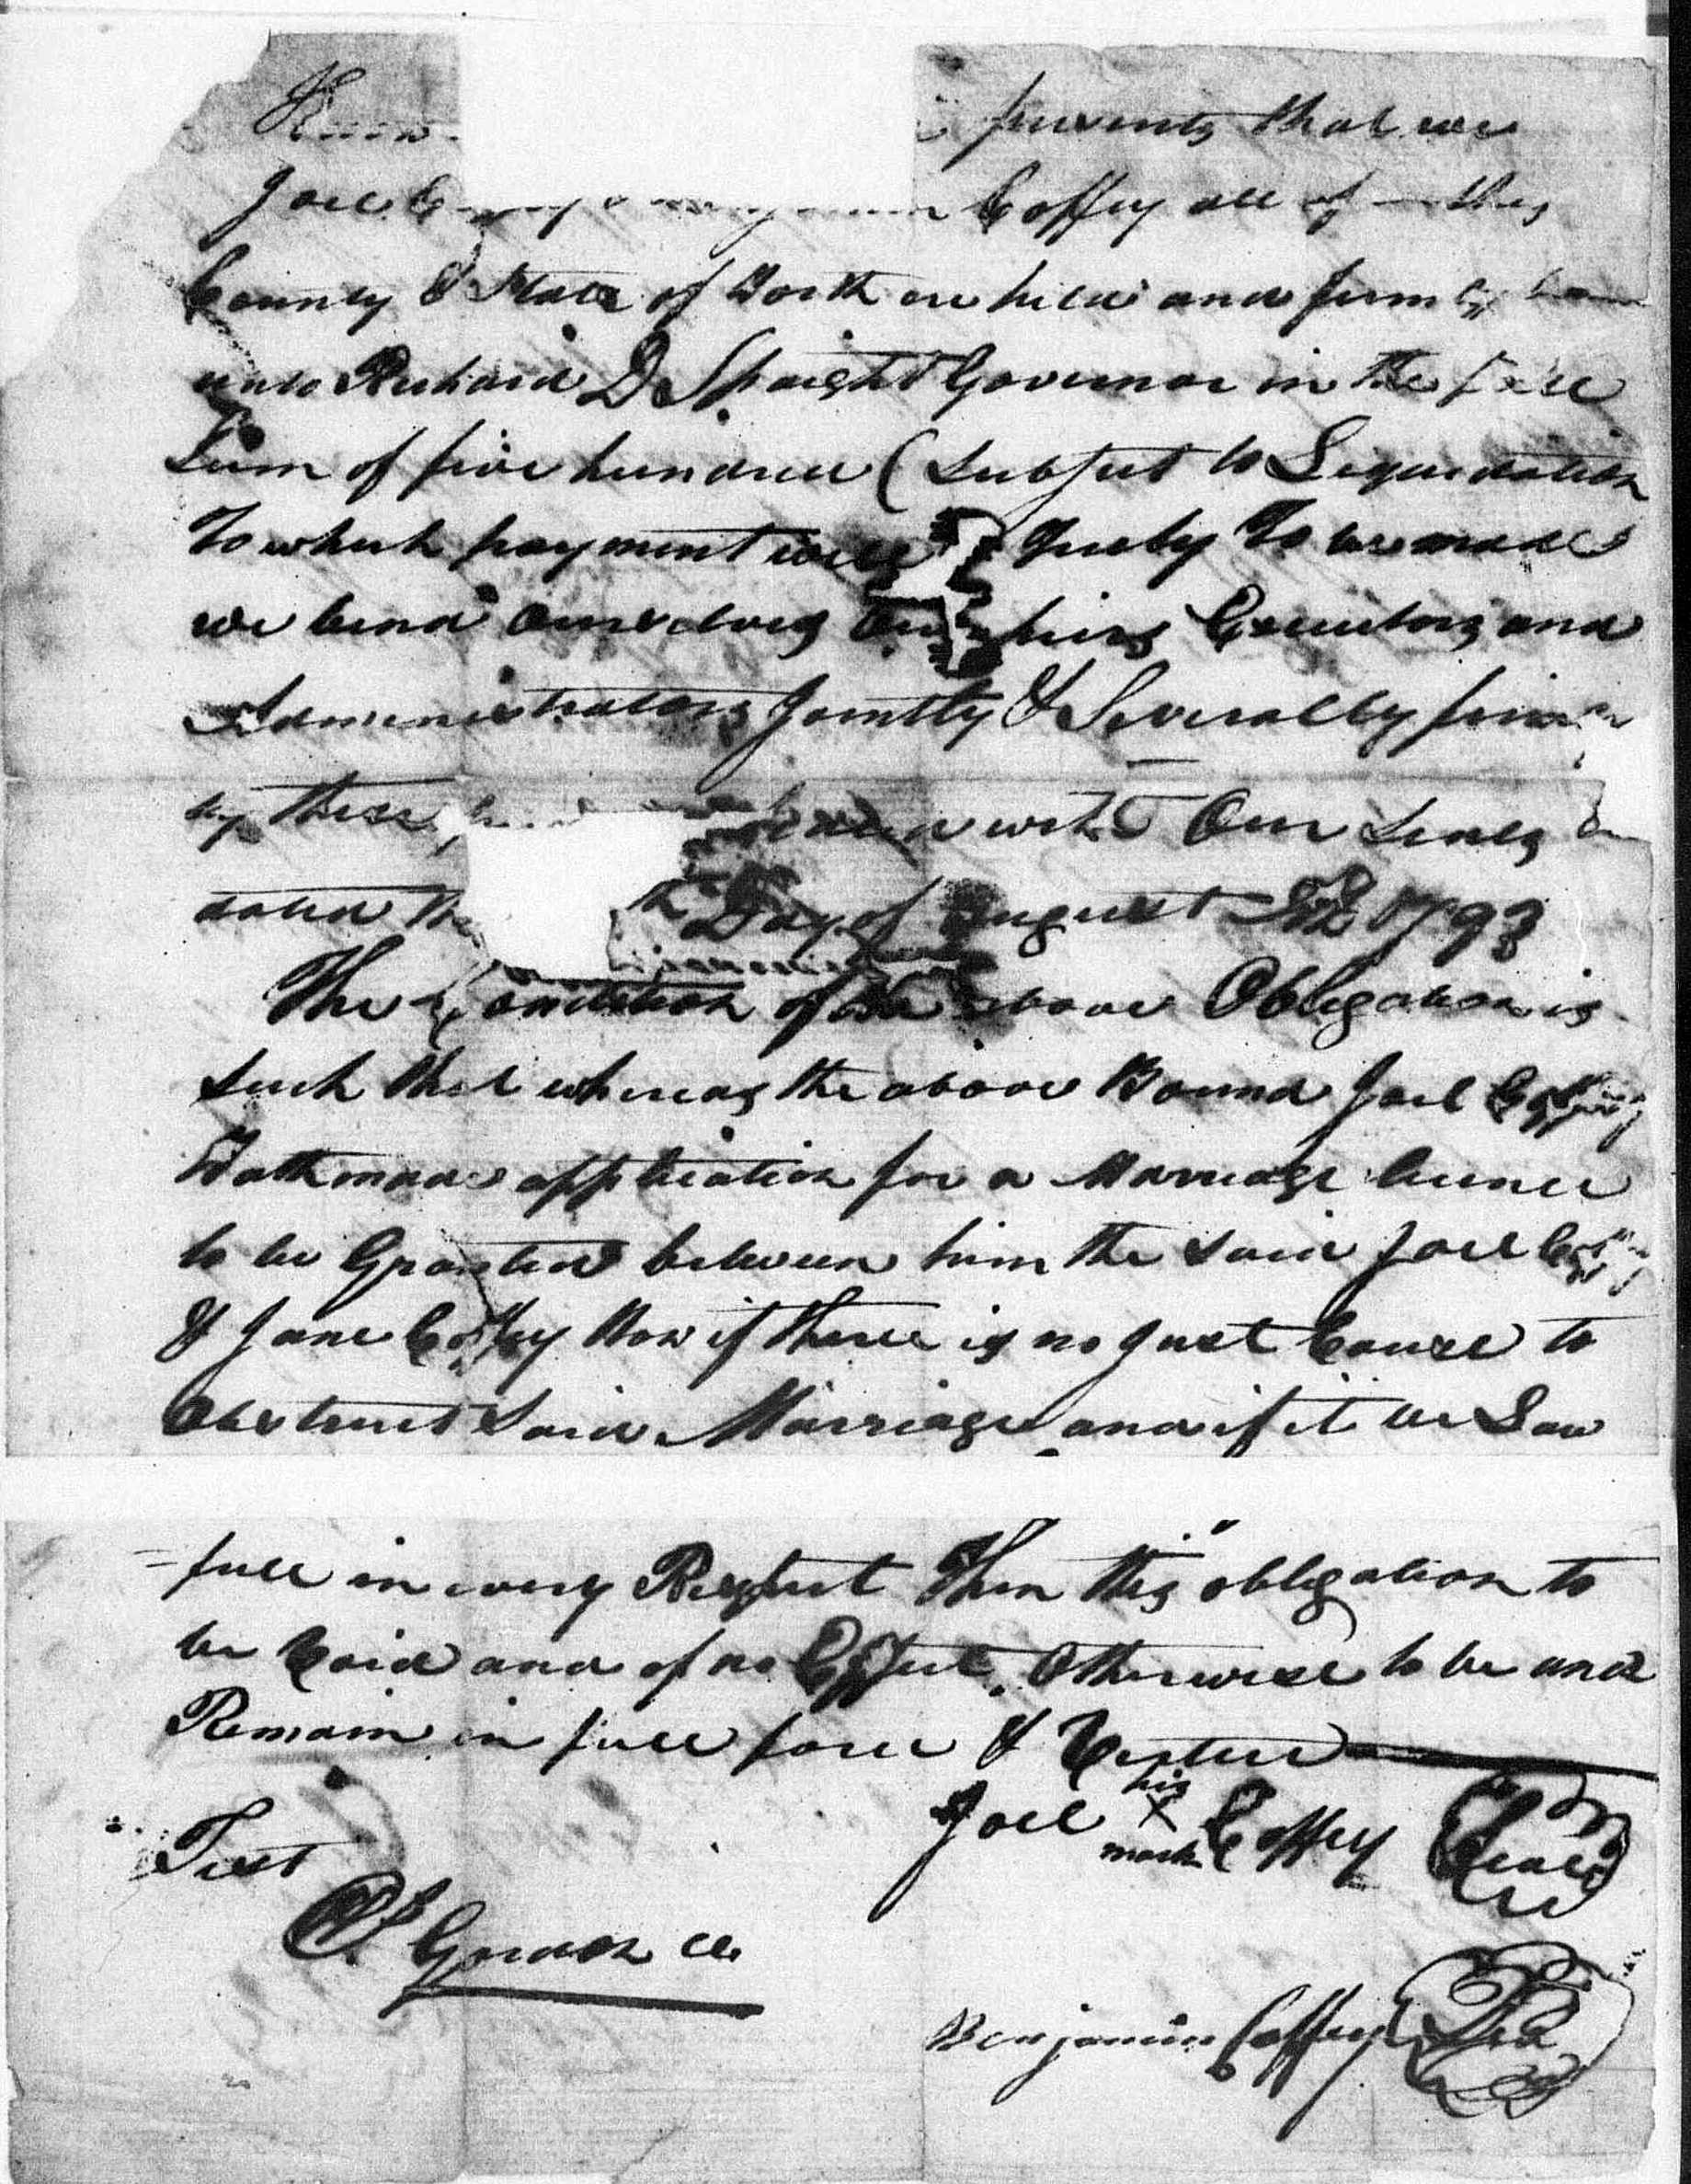 Know presents that we
Joel Coffey all of this
County & State of North are held and firmly
unto Richard D Spaight Governor in the full
Sum of five hundred (Subject to Liquidation
To which payment well Truely To be made
we bind Ourselves Our heirs Executors and
Administrators Jointly & Severally firm
by these Sealed with Our Seals
dated the th Day of August 1793
The Condition of the above Obligation is
such that whereas the above Bound Joel Coffey
Hath made application for a Marriage licence
to be Granted between him the said Joel Coffey
& Jane Coffey Now if there is no Just Cause to
Obstruct Said Marriage and if it be Law
=full in every Respect Then this obligation to
be Void and of no Effect, Otherwise to be and
Remain in full force & Vertue
Joel his X mark Coffey Seal
Test
Gordon
Benjamin Coffey